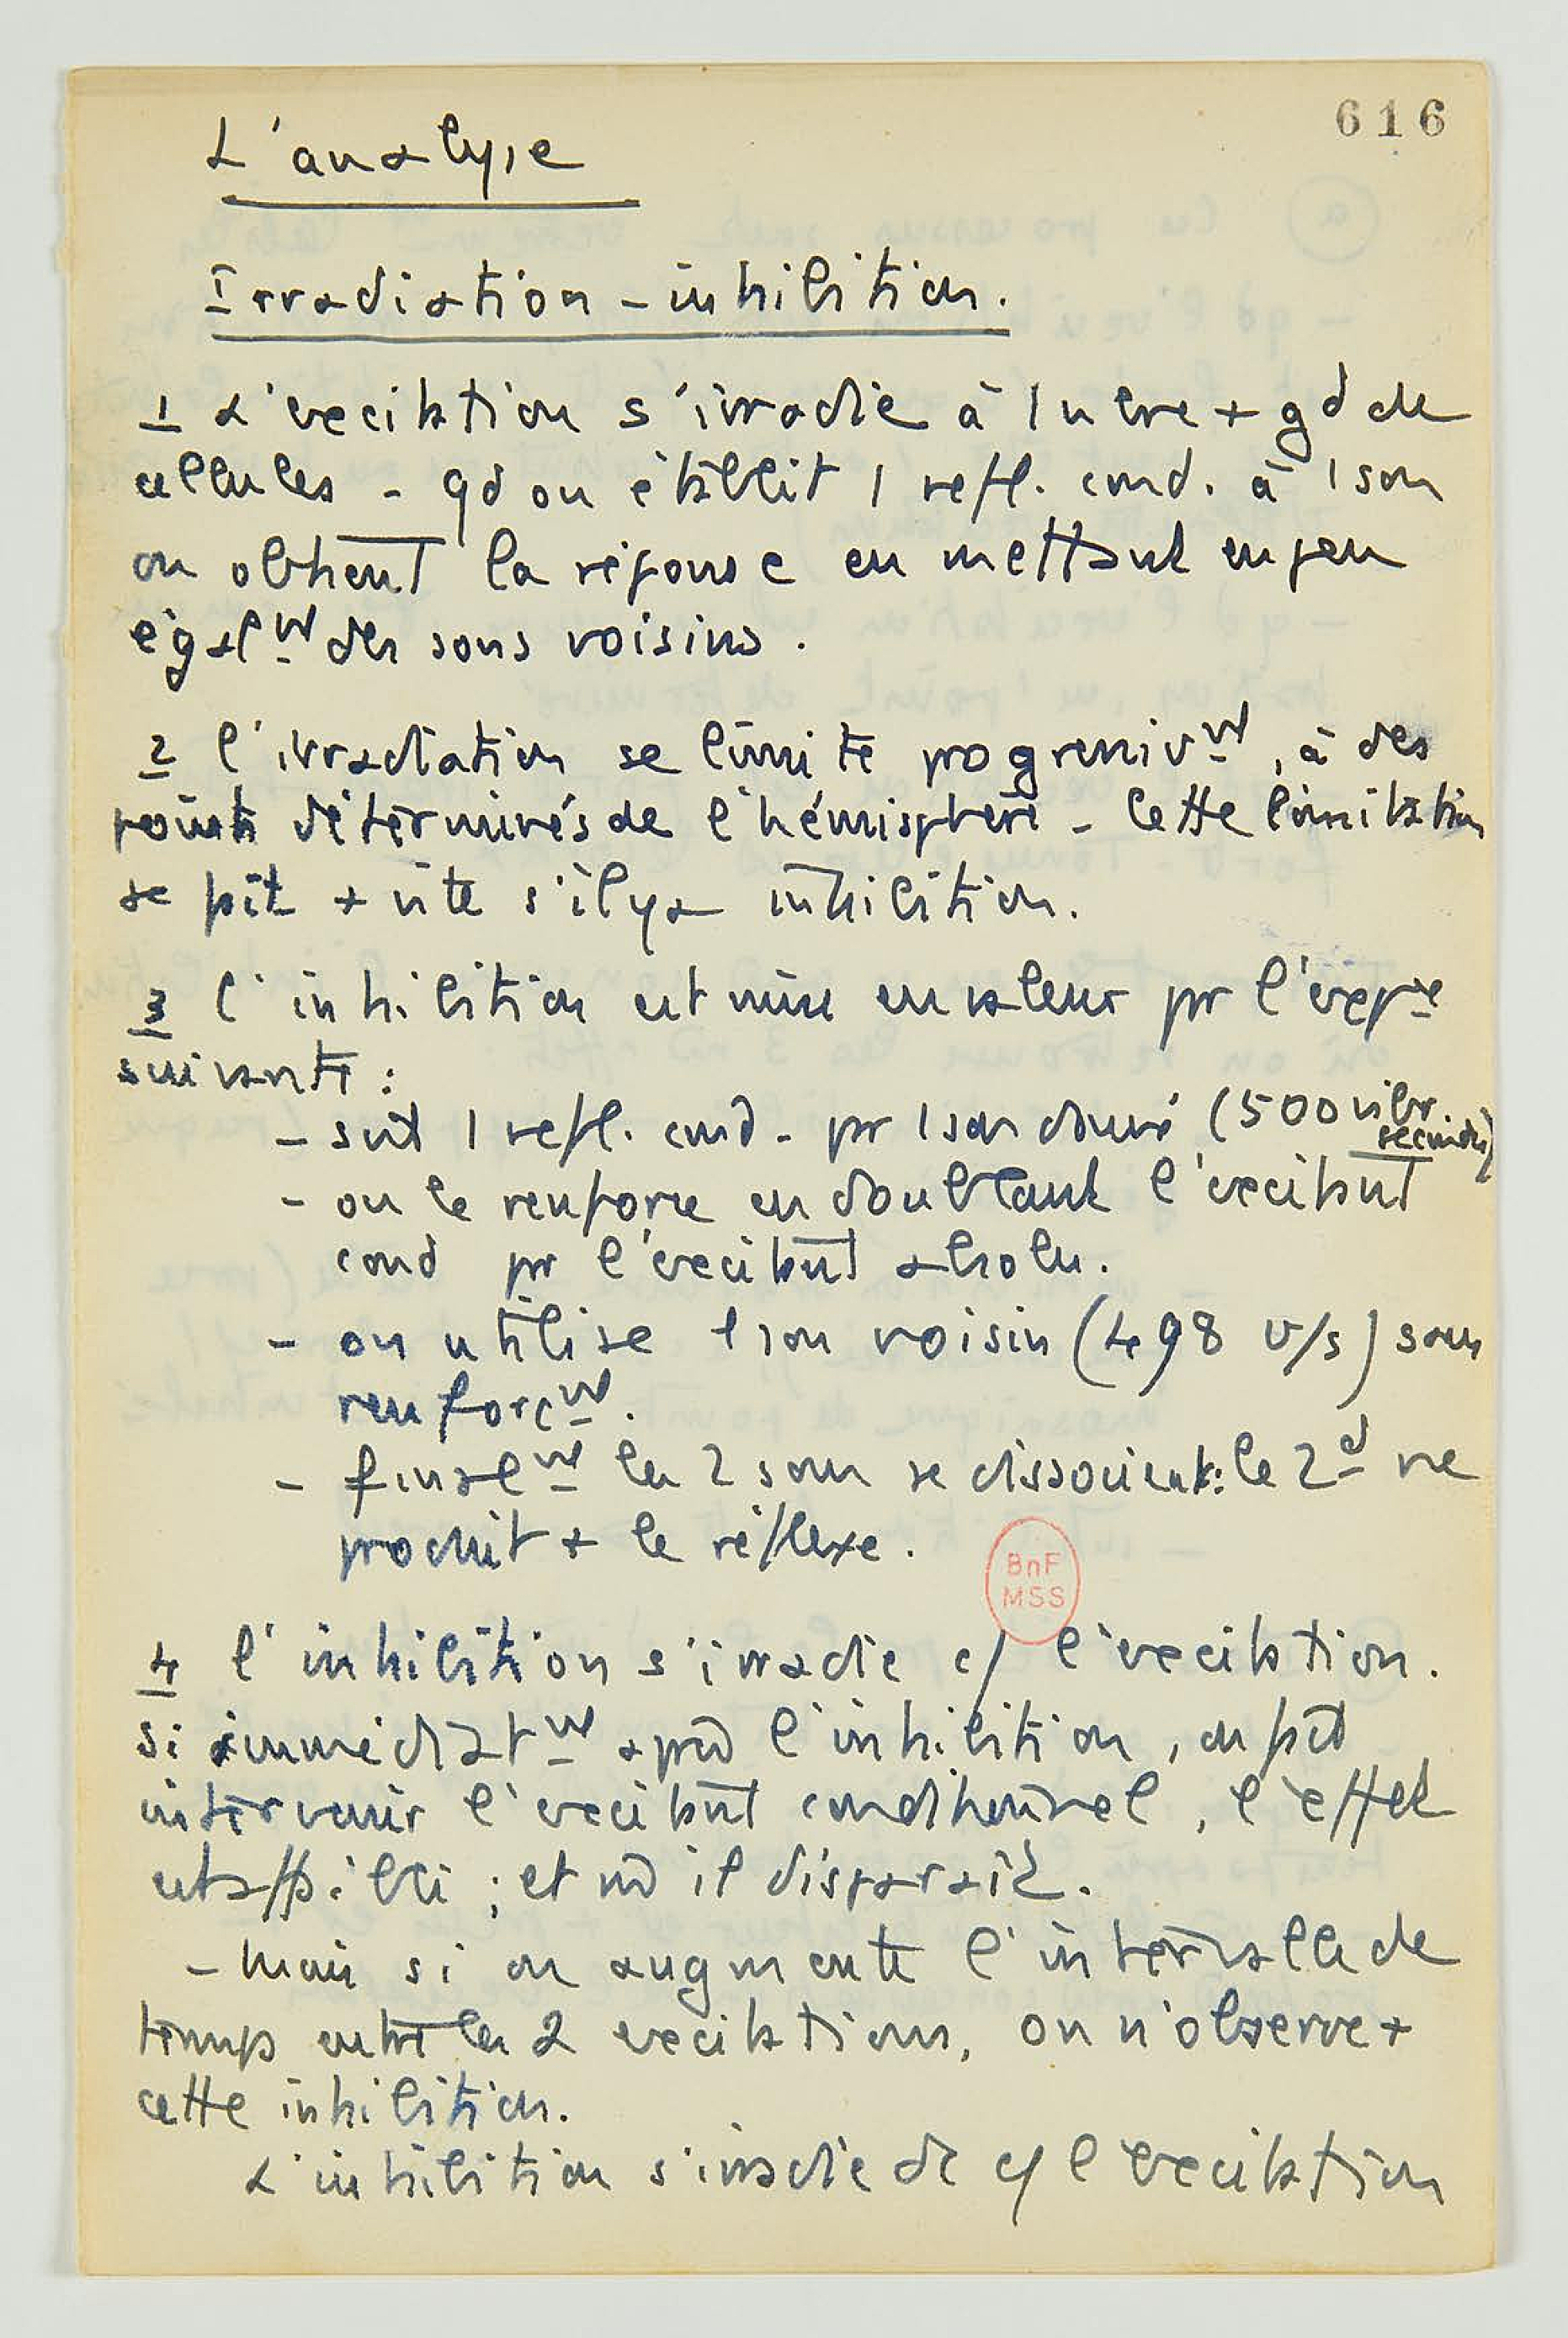 616
L'analyse
Irradiation - inhibition.
1 L'excitation s'irradie à 1 nbre + gd de
cellules - qd on établit 1 refl. cond. à 1 son
on obtient la réponse en mettant en jeu
égalᵗ des sons voisins.
2 l'irradiation se limite progressivᵗ, à des
points déterminés de l'hémisphère - Cette limitation
se fait + vite s'il y a inhibition.
3 l'inhibition est mise en valeur par l'expᵉ
suivante :
- soit 1 refl. cond. par 1 son donné (500 vibr.
seconde)
- on le renforce en doublant l'excitant
cond par l'excitant absolu.
- on utilise 1 son voisin (498 v/s) sans
renforcᵗ.
- finalᵗ les 2 sons se dissocient : le 2ᵈ ne
produit + le réflexe.
BnF
MSS
4 l'inhibition s'irradie c/ l'excitation.
Si immédiatᵗ après l'inhibition, on fait
intervenir l'excitant conditionnel, l'effet
est affaibli ; et il disparaît.
- Mais si on augmente l'intervalle de
temps entre les 2 excitations, on n'observe +
cette inhibition.
L'inhibition s'irradie dc c/ l'excitation